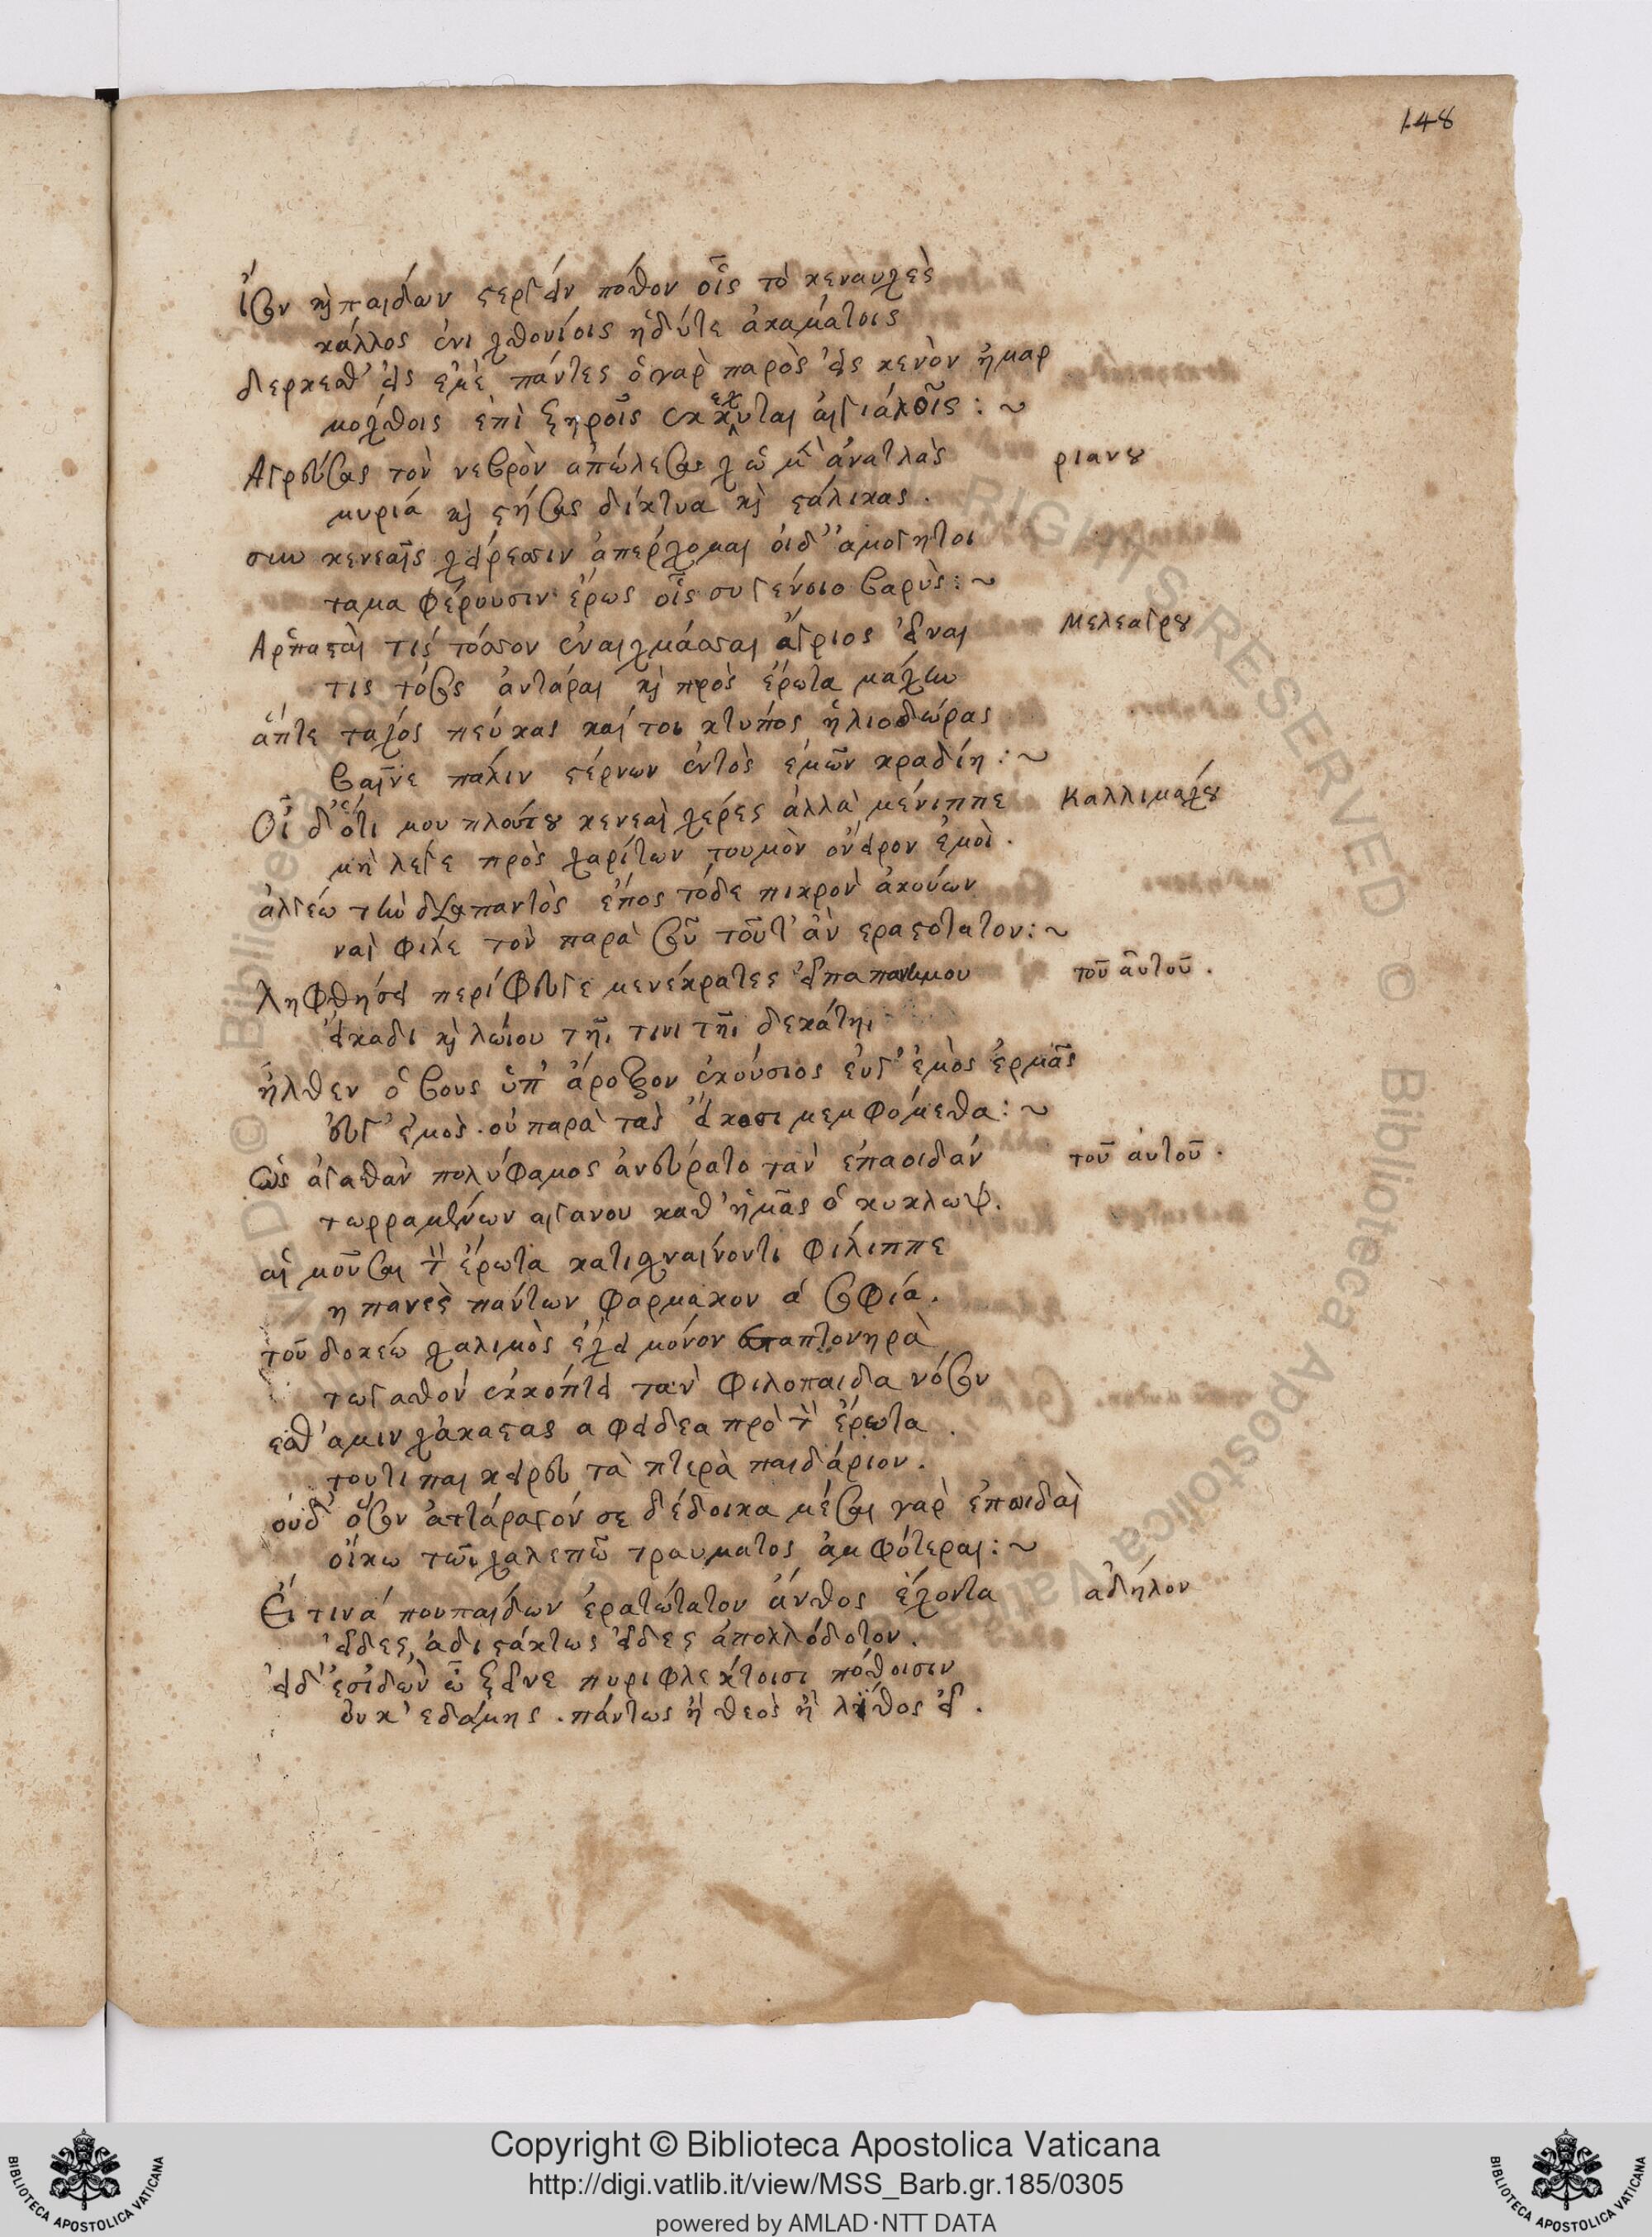 148
ἴσον κ παιδων στέργειν πόθον οἷς τὸ κεναυχὲς
κάλλος ἐνι χθονίοις ἡδύτε ἀκαμάτοις
δερκεσθ' εἰς ἐμὲ πάντες ὁ γαρ παρος εἰς κενὸν ἦμαρ
μόχθοις ἐπὶ ξηροῖς ἐκκέχυται αἰγιαλοῖς :~
Ἀγρεύσας τὸν νεβρὸν ἀπώλεσα χὠ μὲν ἀνατλὰς ριανου
μυριά καὶ στήσας δίκτυα καὶ στάλικας.
σὺν κενεαῖς χείρεσσιν ἀπέρχομαι οἱ δ' ἀμόγητοι
ταμα φέρουσιν ἔρως οἷς συ γένοιο βαρὺς :~
Ἁρπασται τίς τόσσον ἐναιχμάσσαι ἄγριος εἶναι Μελεαγρου
τις τόσος ἀντᾶραι καὶ πρὸς ἔρωτα μάχην
ἅπτε ταχος πεύκας καί τοι κτυπος ἡλιοδώρας
βαῖνε πάλιν στέρνων ἐντὸς ἐμῶν κραδίη :~
Οἶδ' ὅτι μου πλούτου κενεαὶ χέρες ἀλλὰ μένιππε Καλλιμάχου
μὴ λέγε πρὸς χαρίτων τουμὸν ὄνειρον ἐμοὶ.
ἀλγέω τὴν διαπαντὸς ἔπος τόδε πικρον ἀκούων
ναὶ φίλε τὸν παρὰ σοῦ τοῦτ' ἀν εραστοτατον :~
ληφθήσει περίφευγε μενέκρατες εἶπα πανημου τοῦ αὐτοῦ.
εἰκαδι καὶ λώιου τῆι τινι τῆι δεκάτηι
ἦλθεν ὁ βους ὑπ' ἄροτρον ἑκούσιος εὖγ' ἐμὸς ἑρμᾶς
εὖγ' ἐμὸς. οὐ παρὰ τὰς εἴκοσι μεμφόμεθα :~
Ὡς ἀγαθὰν πολύφαμος ἀνεύρατο τὰν ἐπαοιδάν τοῦ αὐτοῦ.
τωρραμένων αιγανου καθ' ἡμᾶς ὁ κυκλωψ.
αἱ μοῦσαι τὸν ἔρωτα κατιχναίνοντι φίλιππε
η πανὲς πάντων φαρμακον ἁ σοφία.
τοῦ δοκέω χαλιμὸς ἔχει μόνον ταπτονηρὰ
τωγαθόν ἐκκόπτει τὰν φιλόπαιδα νόσον
εσθ' αμιν χἀκαστας αφειδεα πρὸ τὸν ἔρωτα.
τουτι παι κείρευ τὰ πτερὰ παιδάριον.
οὐδ' ὅσον ἀττάραγόν σε δέδοικα μέσαι γαρ ἐπωιδαὶ
οἴκω τῶι χαλεπῶ τραυματος ἀμφότεραι :~
Εἴ τινά που παιδων ἐρατώτατον ἄνθος ἔχοντα ἀδήλον
εἶδες, ἀδιστάκτως εἶδες ἀπολλόδοτον.
εἰ δ' ἐσιδὼν ὦ ξεῖνε πυριφλεκτοισι πόθοισιν
ουκ' εδάμης. πάντως ἢ θεὸς ἢ λίθος εἶ.
Copyright © Biblioteca Apostolica Vaticana
http://digi.vatlib.it/view/MSS_Barb.gr.185/0305
powered by AMLAD·NTT DATA